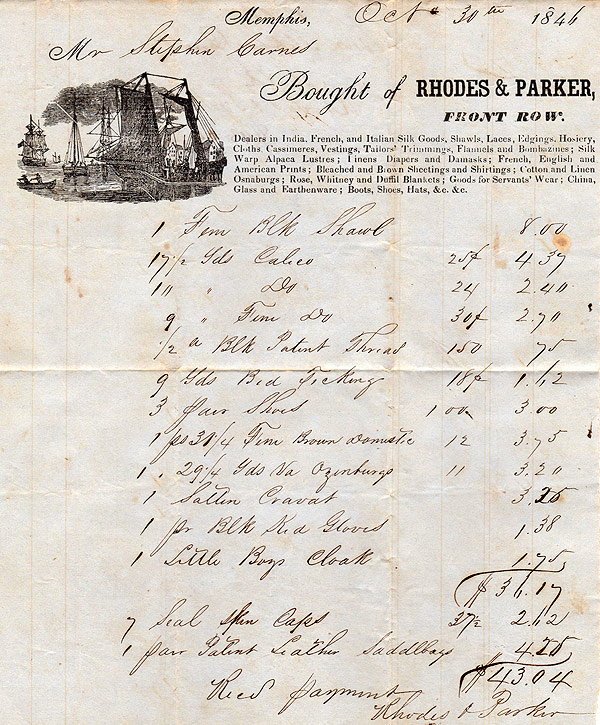 Memphis, Oct 30th 1846
Mr Stephen Carnes
Bought of RHODES & PARKER,
FRONT ROW.
Dealers in India, French, and Italian Silk Goods, Shawls, Laces, Edgings, Hosiery,
Cloths, Cassimeres, Vestings, Tailors' Trimmings, Flannels and Bombazines; Silk
Warp Alpaca Lustres; Linens Diapers and Damasks; French, English and
American Prints; Bleached and Brown Sheetings and Shirtings; Cotton and Linen
Osnaburgs; Rose, Whitney and Duffil Blankets; Goods for Servants' Wear; China,
Glass and Earthenware; Boots, Shoes, Hats, &c. &c.
1 Fine Blk Shawl 8.00
17 1/2 Yds Calico 25¢ 4.37
10 " Do 24 2.40
9 " Fine Do 30¢ 2.70
1/2 Blk Patent Thread 150 75
9 Yds Bed Ticking 18¢ 1.62
3 pair Shoes 1 00 3.00
1 ps 31 1/4 Fine Brown Domestic 12 3.75
1 " 29 1/4 Yds Va Ozenburgs 11 3.20
1 Satten Cravat 3.25
1 pr Blk Kid Gloves 1.38
1 Little Boys Cloak 1.75
$36.17
7 Seal Skin Caps 37 1/2 2.62
1 pair Patent Leather Saddlbags 4.25
$43.04
Recd payment
Rhodes & Parker